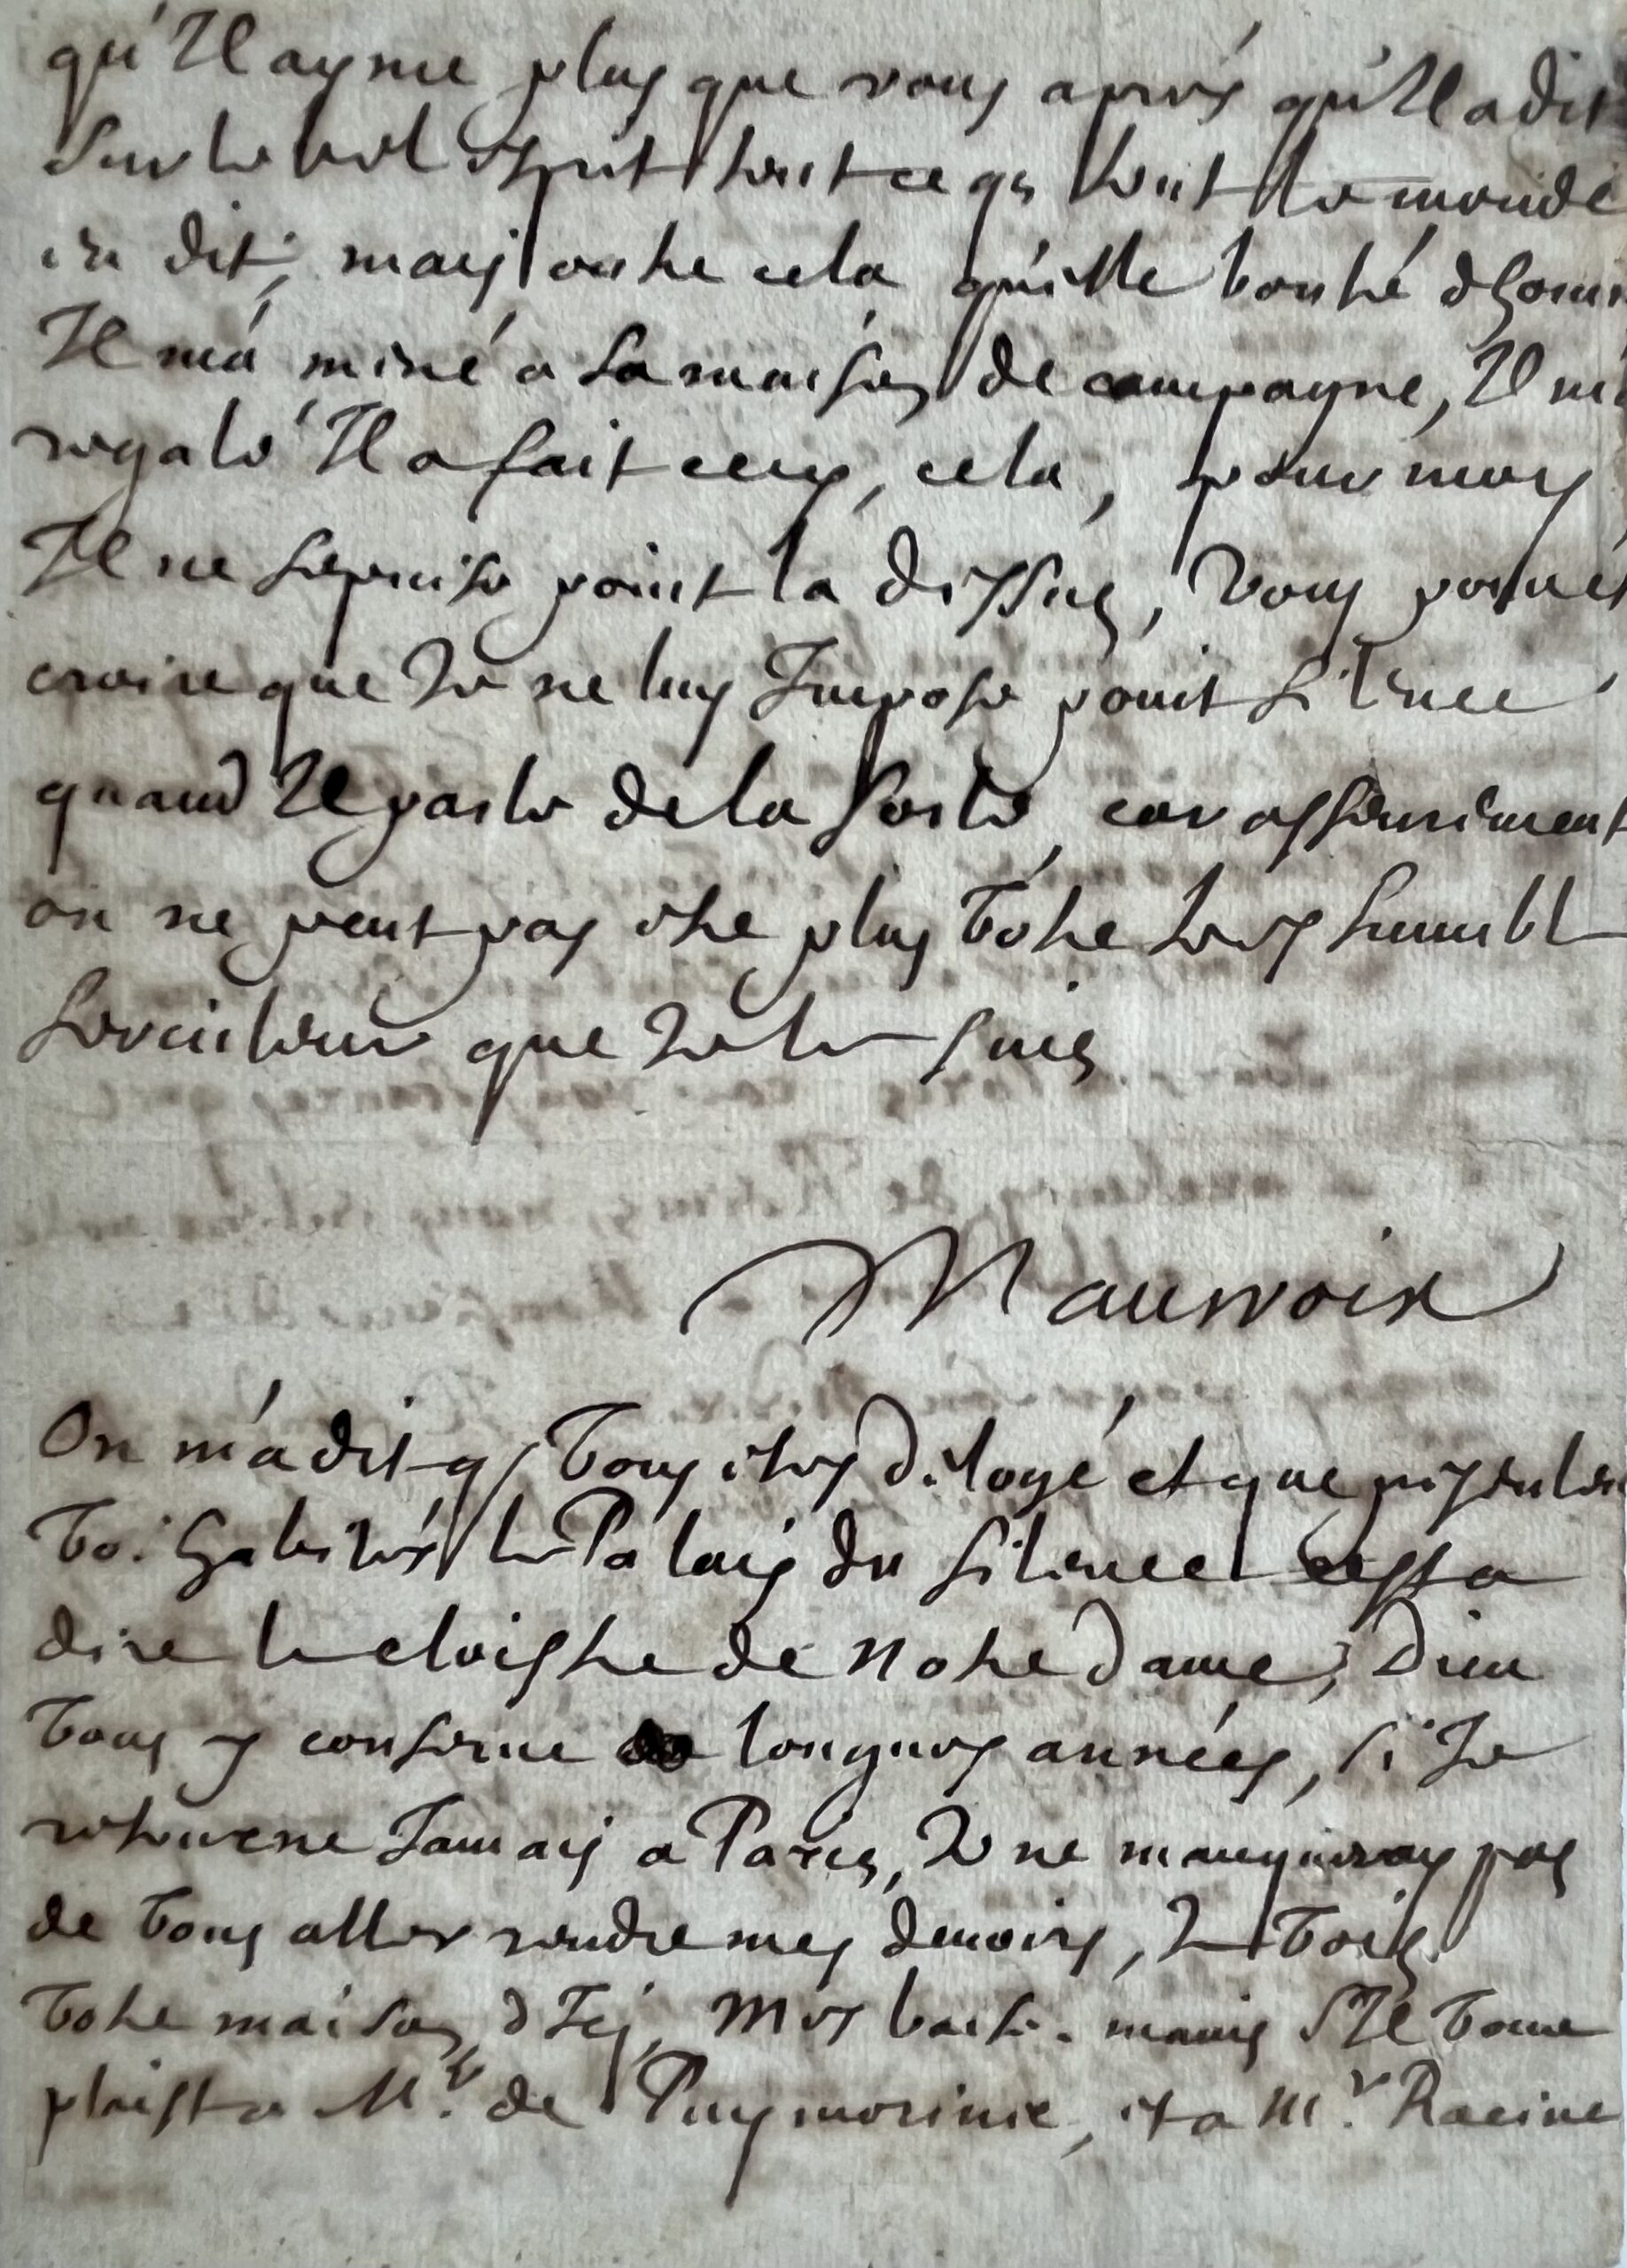 qu'Il ayme plus que vous apres qu'Il a dit
sur le bel Esprit tout ce q tout le monde
en dit, mais outre cela qu'elle bonté d'homm
Il m'a mené a sa maison de campagne, Il m'a
regalé Il a fait cecy, cela, pour moy
Il ne s'epuise point la dessus, vous pouués
croire que Je ne luy Impose point silence
quand Il parle de la sorte, car assurement
on ne peut pas estre plus votre tres humble
serviteur que Je le suis
Maucroix
On m'a dit q vous etes delogé et que presentem
vo. habités le Palais du silence cest a
dire le cloistre de Notre dame, Dieu
vous y conserue longues années, si Je
retourne Jamais a Paris, Je ne manqueray pas
de vous aller rendre mes deuoirs, Je vois
votre maison d'Icy, Mes baise-mains s'Il vous
plaist a Mr. de Puymorine, et a Mr. Racine